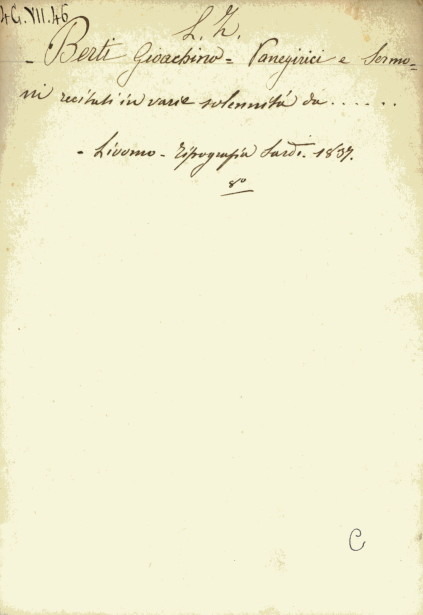 4G.VII.46
L. Z.
- Berti Gioachino = Panegirici e Sermo=
ni recitati in varie solennità da ......
- Livorno - Tipografia Sardi. 1837.
8º
C